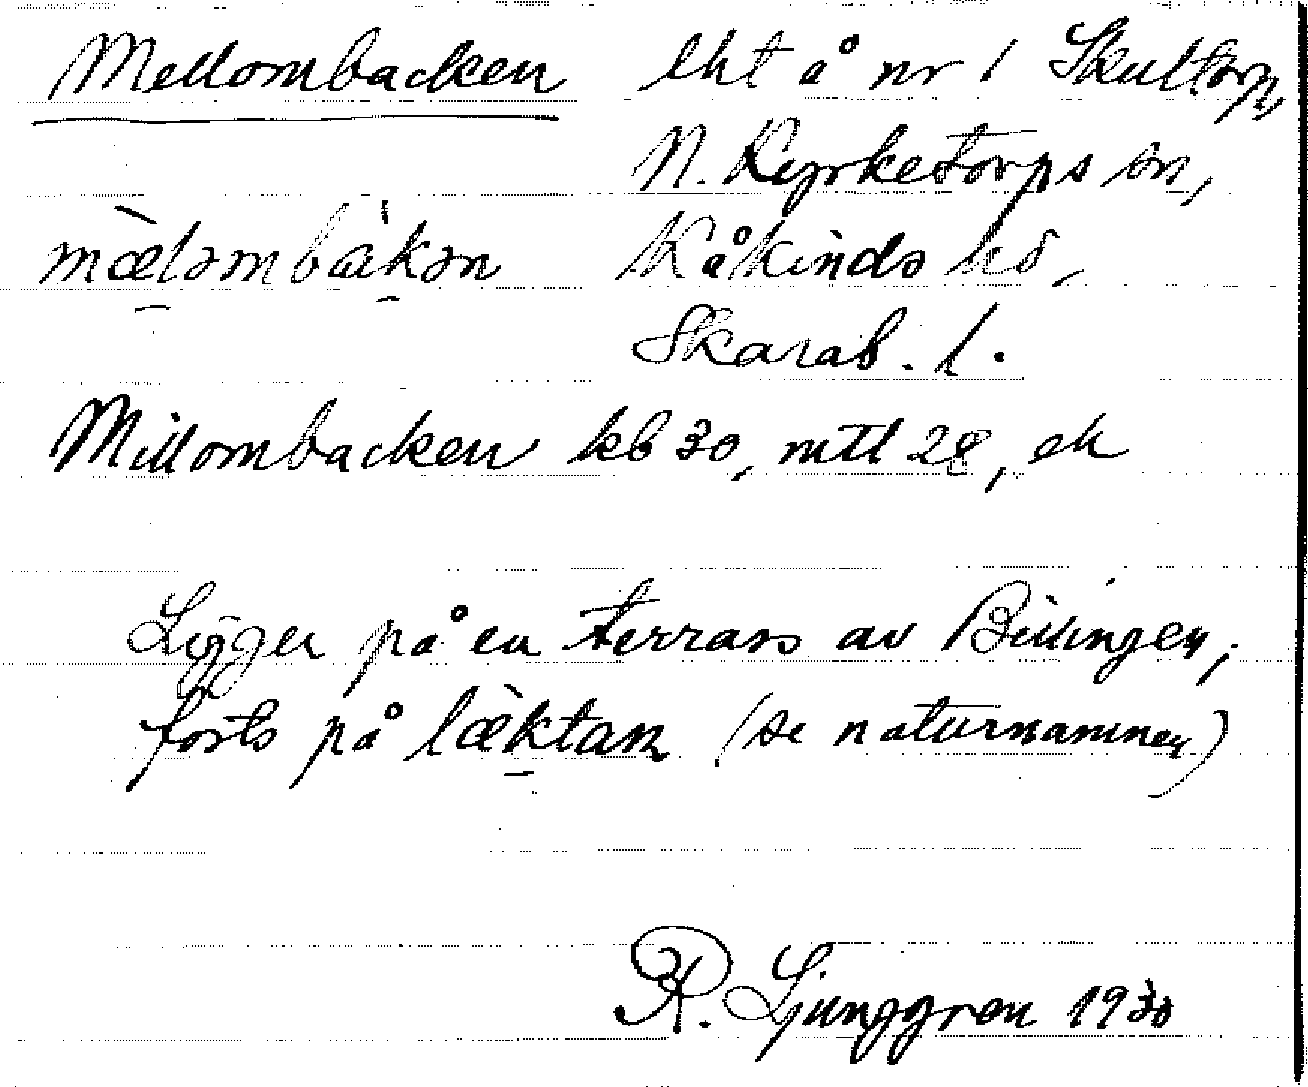 Mellombacken lht å nr 1 Skultorp,
N. Kyrketorps sn,
mælombakən Kåkinds hd,
Skarab. l.
Millombacken kb 30, mtl 28, ek
Ligger på en terrass av Billingen,
forts på læktan (se naturnamnen)
R. Ljunggren 1930